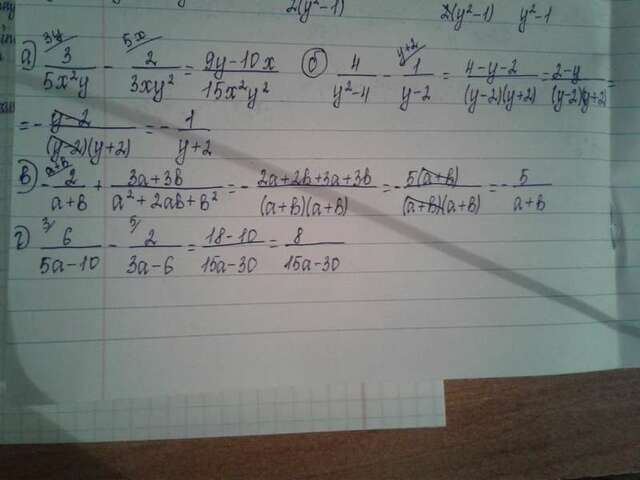 2(y²-1) 2(y²-1) y²-1
а) 3/5x²y - 2/3xy² = 9y-10x/15x²y² б) 4/y²-4 - 1/y-2 = 4-y-2/(y-2)(y+2) = 2-y/(y-2)(y+2) =
= - y-2/(y-2)(y+2) = - 1/y+2
в) - 2/a+b + 3a+3b/a²+2ab+b² = - 2a+2b+3a+3b/(a+b)(a+b) = - 5(a+b)/(a+b)(a+b) = - 5/a+b
г) 6/5a-10 - 2/3a-6 = 18-10/15a-30 = 8/15a-30